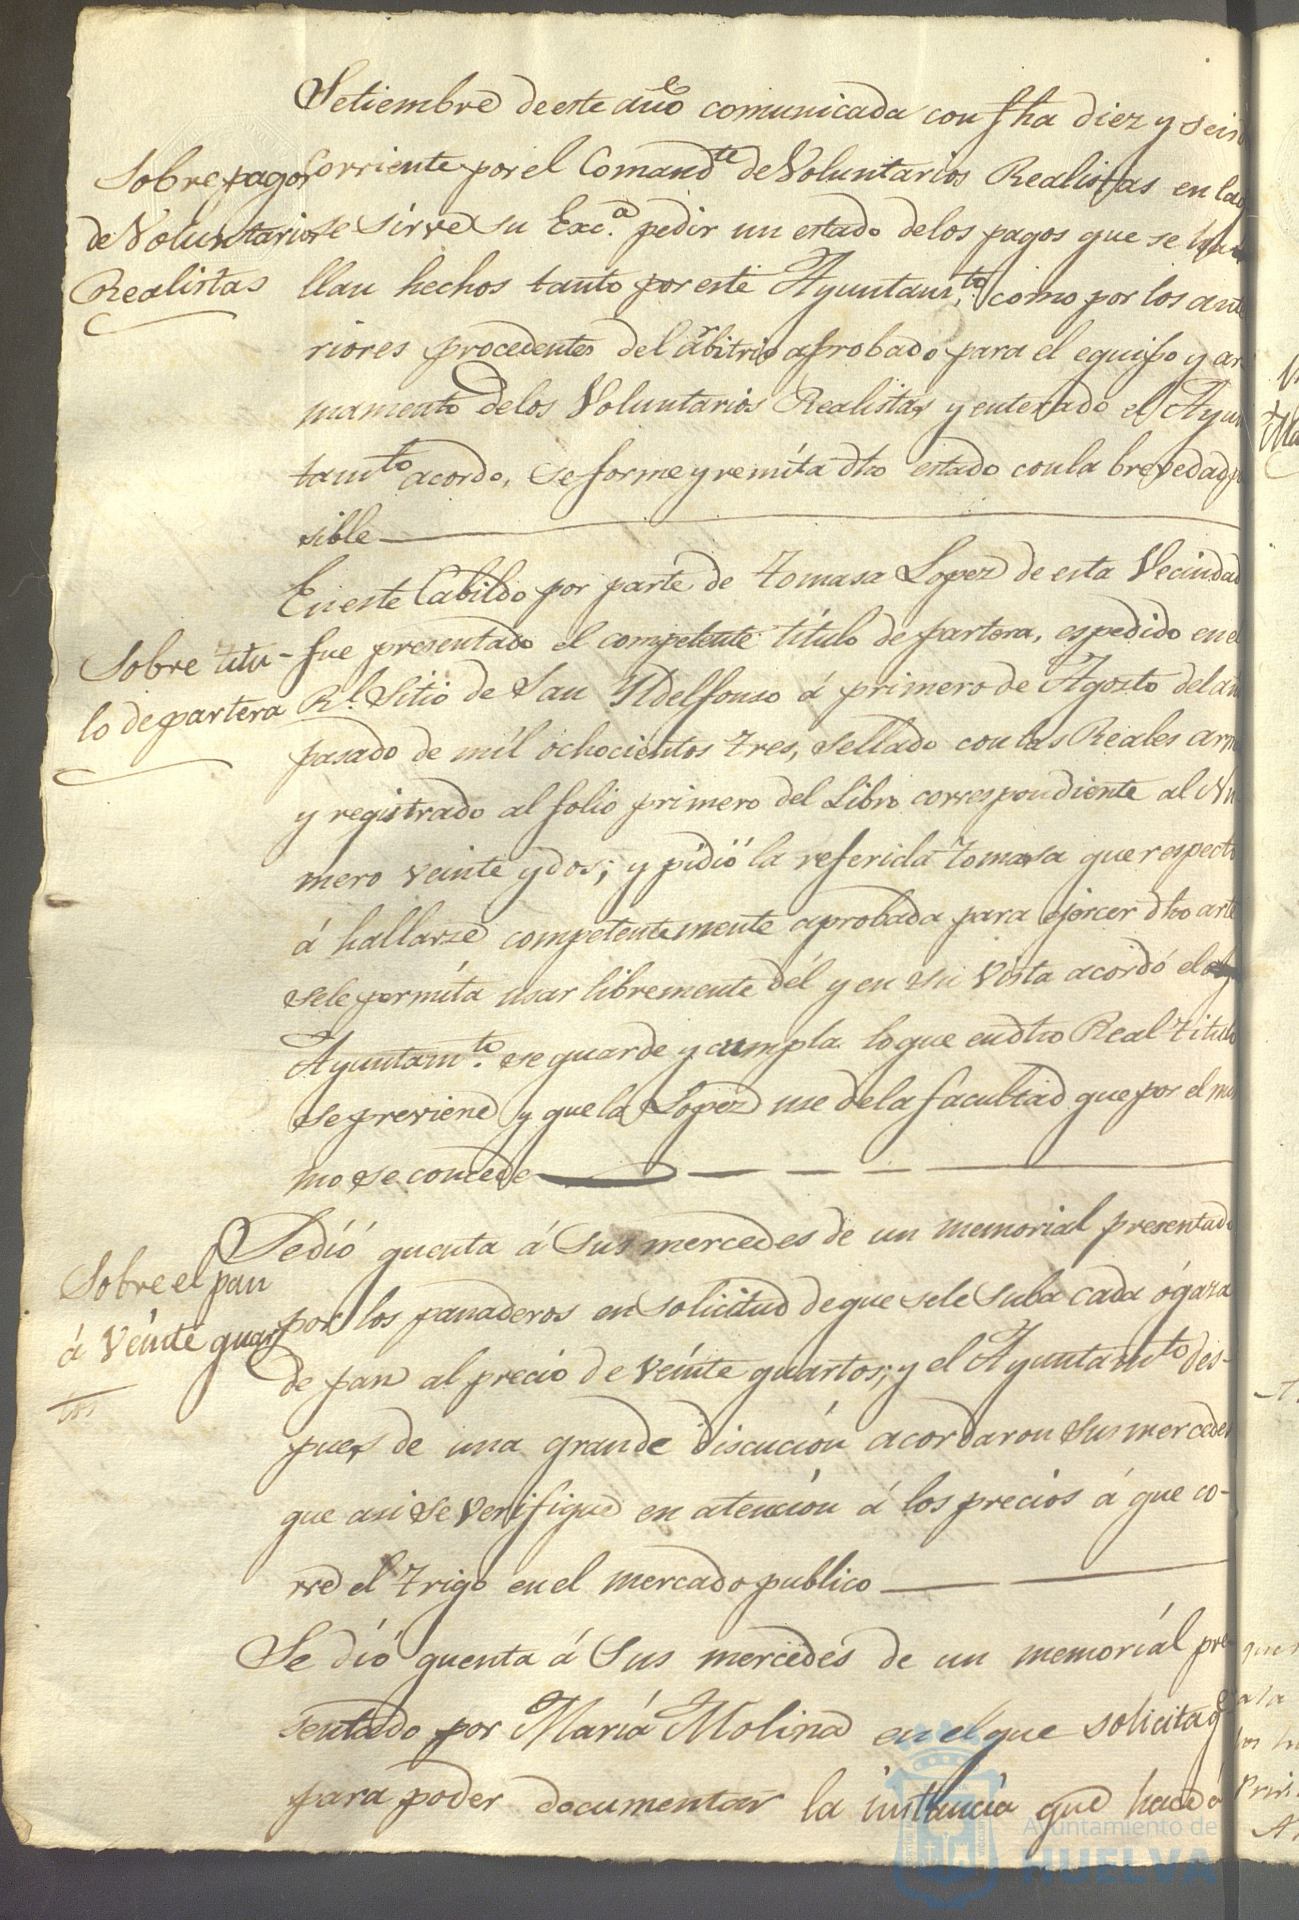 Setiembre de este año comunicada con fha diez y seis
Sobre pagos
de Voluntarios
Realistas
corriente por el Comandte de Voluntarios Realistas en la q
se sirve su Exca. pedir un estado de los pagos que se ha
llan hechos tanto por este Ayuntamto. como por los ante
riores procedentes del arbitrio aprobado para el equipo y ar
mamento de los Voluntarios Realistas y enterado el Ayun
tamto acordo, se forme y remita dho estado con la brevedad po
sible
En este Cabildo por parte de Tomasa Lopez de esta Vecindad
Sobre titu-
lo de partera
fue presentado el competente titulo de partera, espedido en el
Rl. Sitio de San Yldelfonso á primero de Agosto del añ
pasado de mil ochocientos tres, sellado con las Reales arm
y registrado al folio primero del Libro correspondiente al Nu
mero veinte y dos; y pidió la referida Tomasa que respecto
á hallarse competentemente aprobada para ejercer dho arte
se le permita usar libremente dél y en su vista acordó el
Ayuntamto. se guarde y cumpla lo que en dho Real titulo
se previene y que la Lopez use de la facultad que por el mis
mo se concede
Se dió quenta á Sus mercedes de un memorial presentado
Sobre el pan
á veinte quar
tos
por los panaderos en solicitud de que se le suba cada ógaza
de pan al precio de veinte quartos; y el Ayuntamto des-
pues de una grande discución acordaron sus mercedes
que asi se verifique en atención á los precios á que co-
rre el trigo en el mercado publico
Se dió quenta á Sus mercedes de un memoriál pre
sentado por María Molina en el que solicita q
para poder documentar la instáncia que hace á
Ayuntamiento de
HUELVA